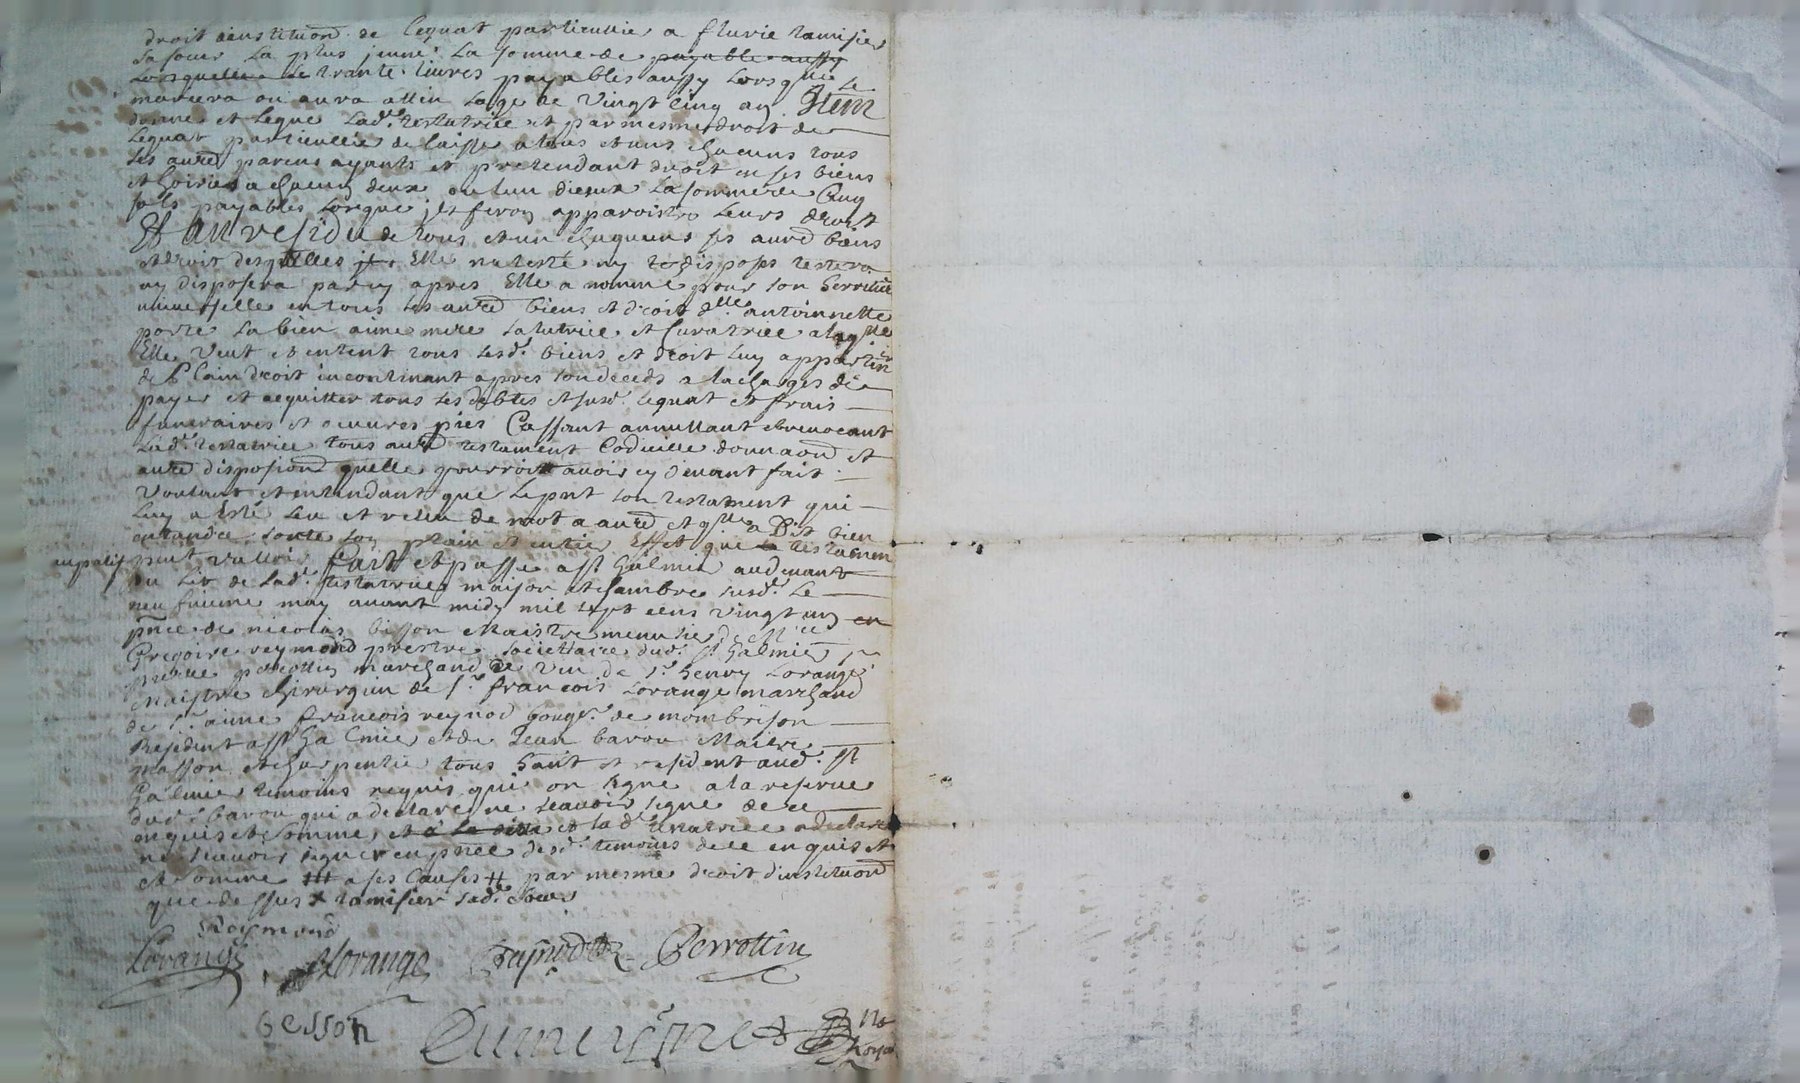 droit dinstitution de Legat particullier a fluvie ramisier
sa soeur la plus jeune la somme de payable aussy
Lorsquelle Le trante Livres payables aussy Lorsquelle se
mariera ou aura attin Lage de vingt cinq ans Item
donne et Legue Lad. testatrice et par mesme droit de
Leguat particullier delaisse a tous et uns chacuns tous
ses autres parens ayants et pretendant droit en ses biens
et hoiries a chacun deux ou lun dieux la somme de Cinq
sols payables Lorsque ilz feron apparoistre Leurs droit
Et au residu de tous et un chaquuns ses autres biens
et droit desquelles Elle na testé ny dispose testera
ny disposera parcy apres Elle a nommé pour son herritiere
universelle en tous ses autres biens et droit dlle antoinnette
porte sa bien aimé mere sa tutrice et Curatrice a laqlle
Elle veut et entent tous sesd. biens et droit luy appartenir
de Plain droit incontinant apres son deceds a la charges de
payer et acquitter tous ses debtes et susd. Leguat et frais
funeraires et oeuvres pies Cassant annullant et revocant
Lad. testatrice tous autres testament Codicille donnaon et
autres disposiond quelle pourroit avoir cy devant fait
Voulant et entendant que Le pnt son testament qui
Luy a esté Leu et releu de mot a autre et qlle a Dit bien
entandre sorte son plain et entier Effet que testamen
nuncupatif valloir fait et passé a St Galmier audevant
du Lit de Lad. testatrice maison et chambre susd. Le
neufvieme may avant midy mil sept cens vingt un en
pnce de nicolas Bisson Maistre menusier de Mre
Gregoire reymond prestre societaire dud. St Galmier sr
pierre perottin marchand de vin de sr henry Lorange
Maistre chirurgien de sr francois Lorange marchand
de sr aimé francois reynod bourgs. de mombrison
Resident a St Galmier et de Jean barou Maitre
masson et charpentier tous habit et resident aud. St
Galmier temoins requis qui on signe a la reserve
dud. barou qui a declaré ne scavoir signé de ce
enquis et sommé et a la dite et lad. testatrice a declaré
ne scavoir signer en pnce desd. temoins de ce enquis et
et somme # a ses Causes # par mesme droit dinstitution
que dessus x ramisier sad. soeur
Reymond
Lorange Lorange Reynod Perrottin
besson Dumeignet No
Royal